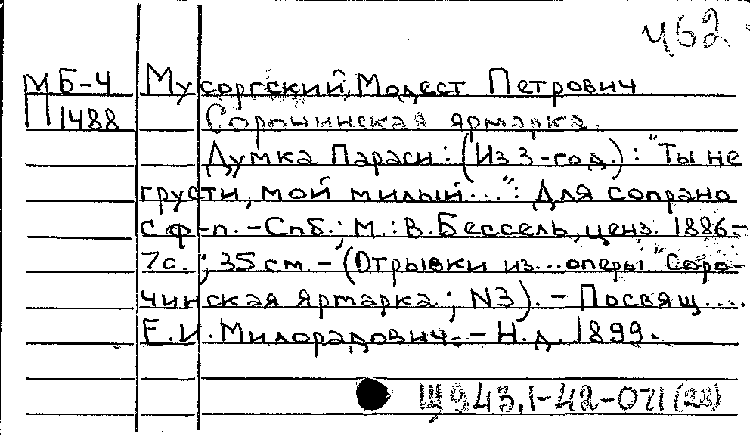 ч62
МБ-4 Мусоргский, Модест Петрович
П1488 Сорочинская ярмарка.
Думка Параси: (Из 3-го д.): "Ты не
грусти, мой милый...": Для сопрано
с ф-п. - Спб.; М.: В. Бессель, ценз. 1886.-
7с.; 35 см. - (Отрывки из... оперы "Соро-
чинская ярмарка"; N3). - Посвящ....
Е.И. Милорадович. - Н.д. 1899.
Щ943.1-42-071(28)